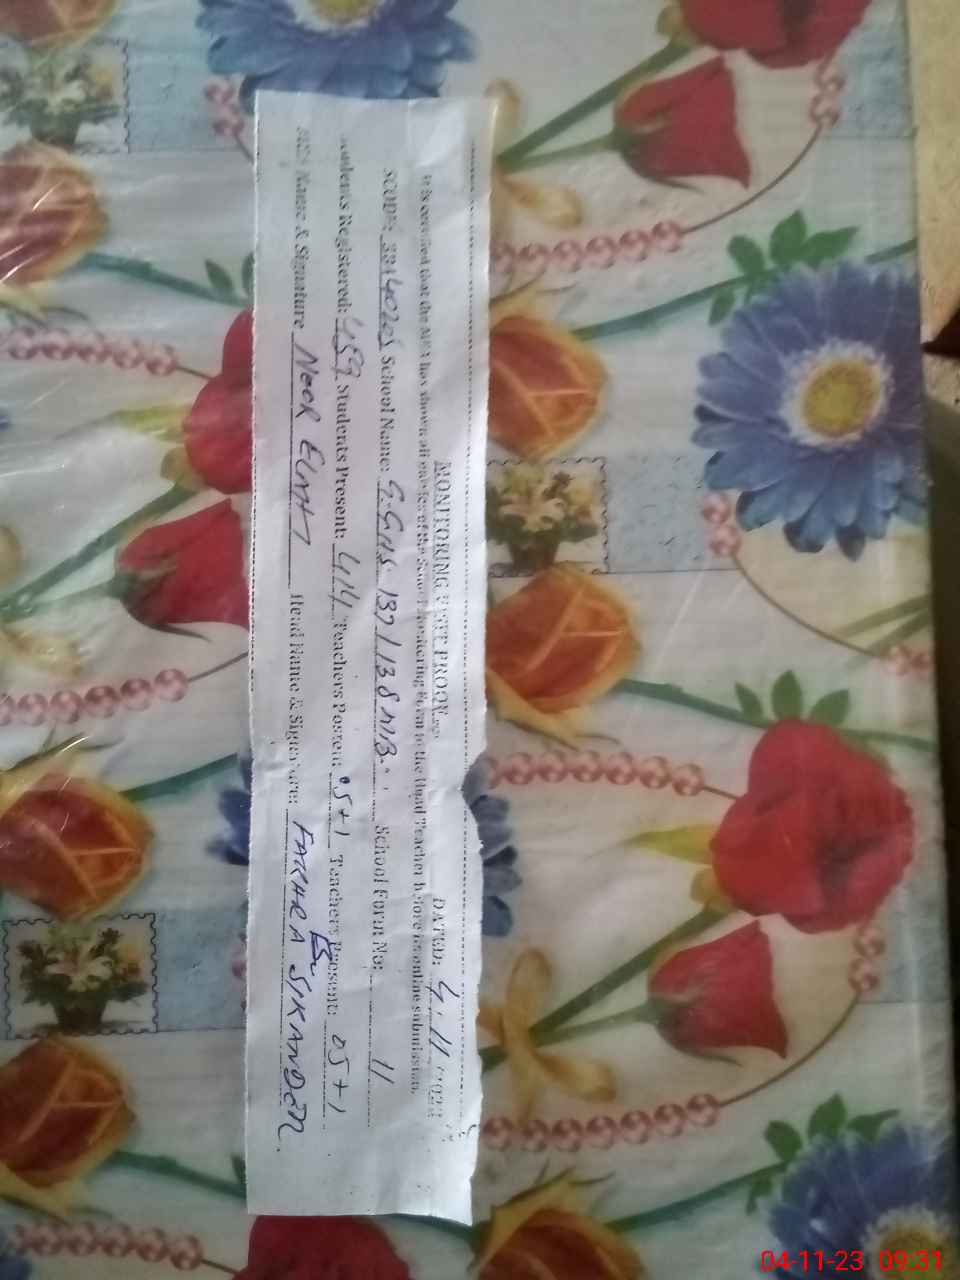 MONITORING VISIT PROOF DATED: 4.11
It is certified that the MEA has shown all entries of the School Monitoring Form to the Head Teacher before its online submission.
School Name: G.GHS 137/138 M.B. School Form No: 11
Students Registered: 459 Students Present: 414 Teachers Posted: 05+1 Teachers Present: 05+1
MEA Name & Signature NOOR ELAHI Head Name & Signature: FAKHRA SIKANDER
04-11-23 09:31